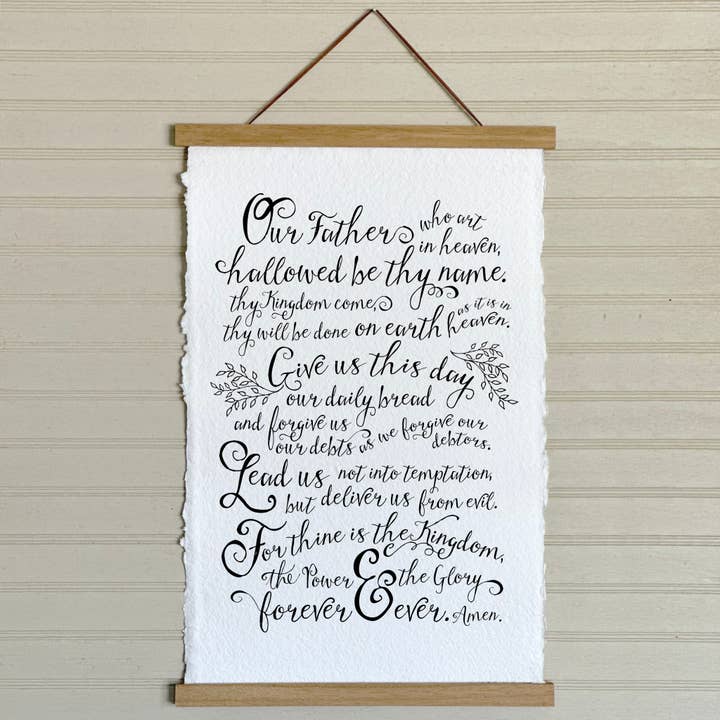 Our Father who art
in heaven,
hallowed be thy name.
thy Kingdom come,
thy will be done on earth as it is in
heaven.
Give us this day
our daily bread
and forgive us
our debts as we forgive our
debtors.
Lead us not into temptation,
but deliver us from evil.
For thine is the Kingdom,
the Power & the Glory
forever & ever. Amen.